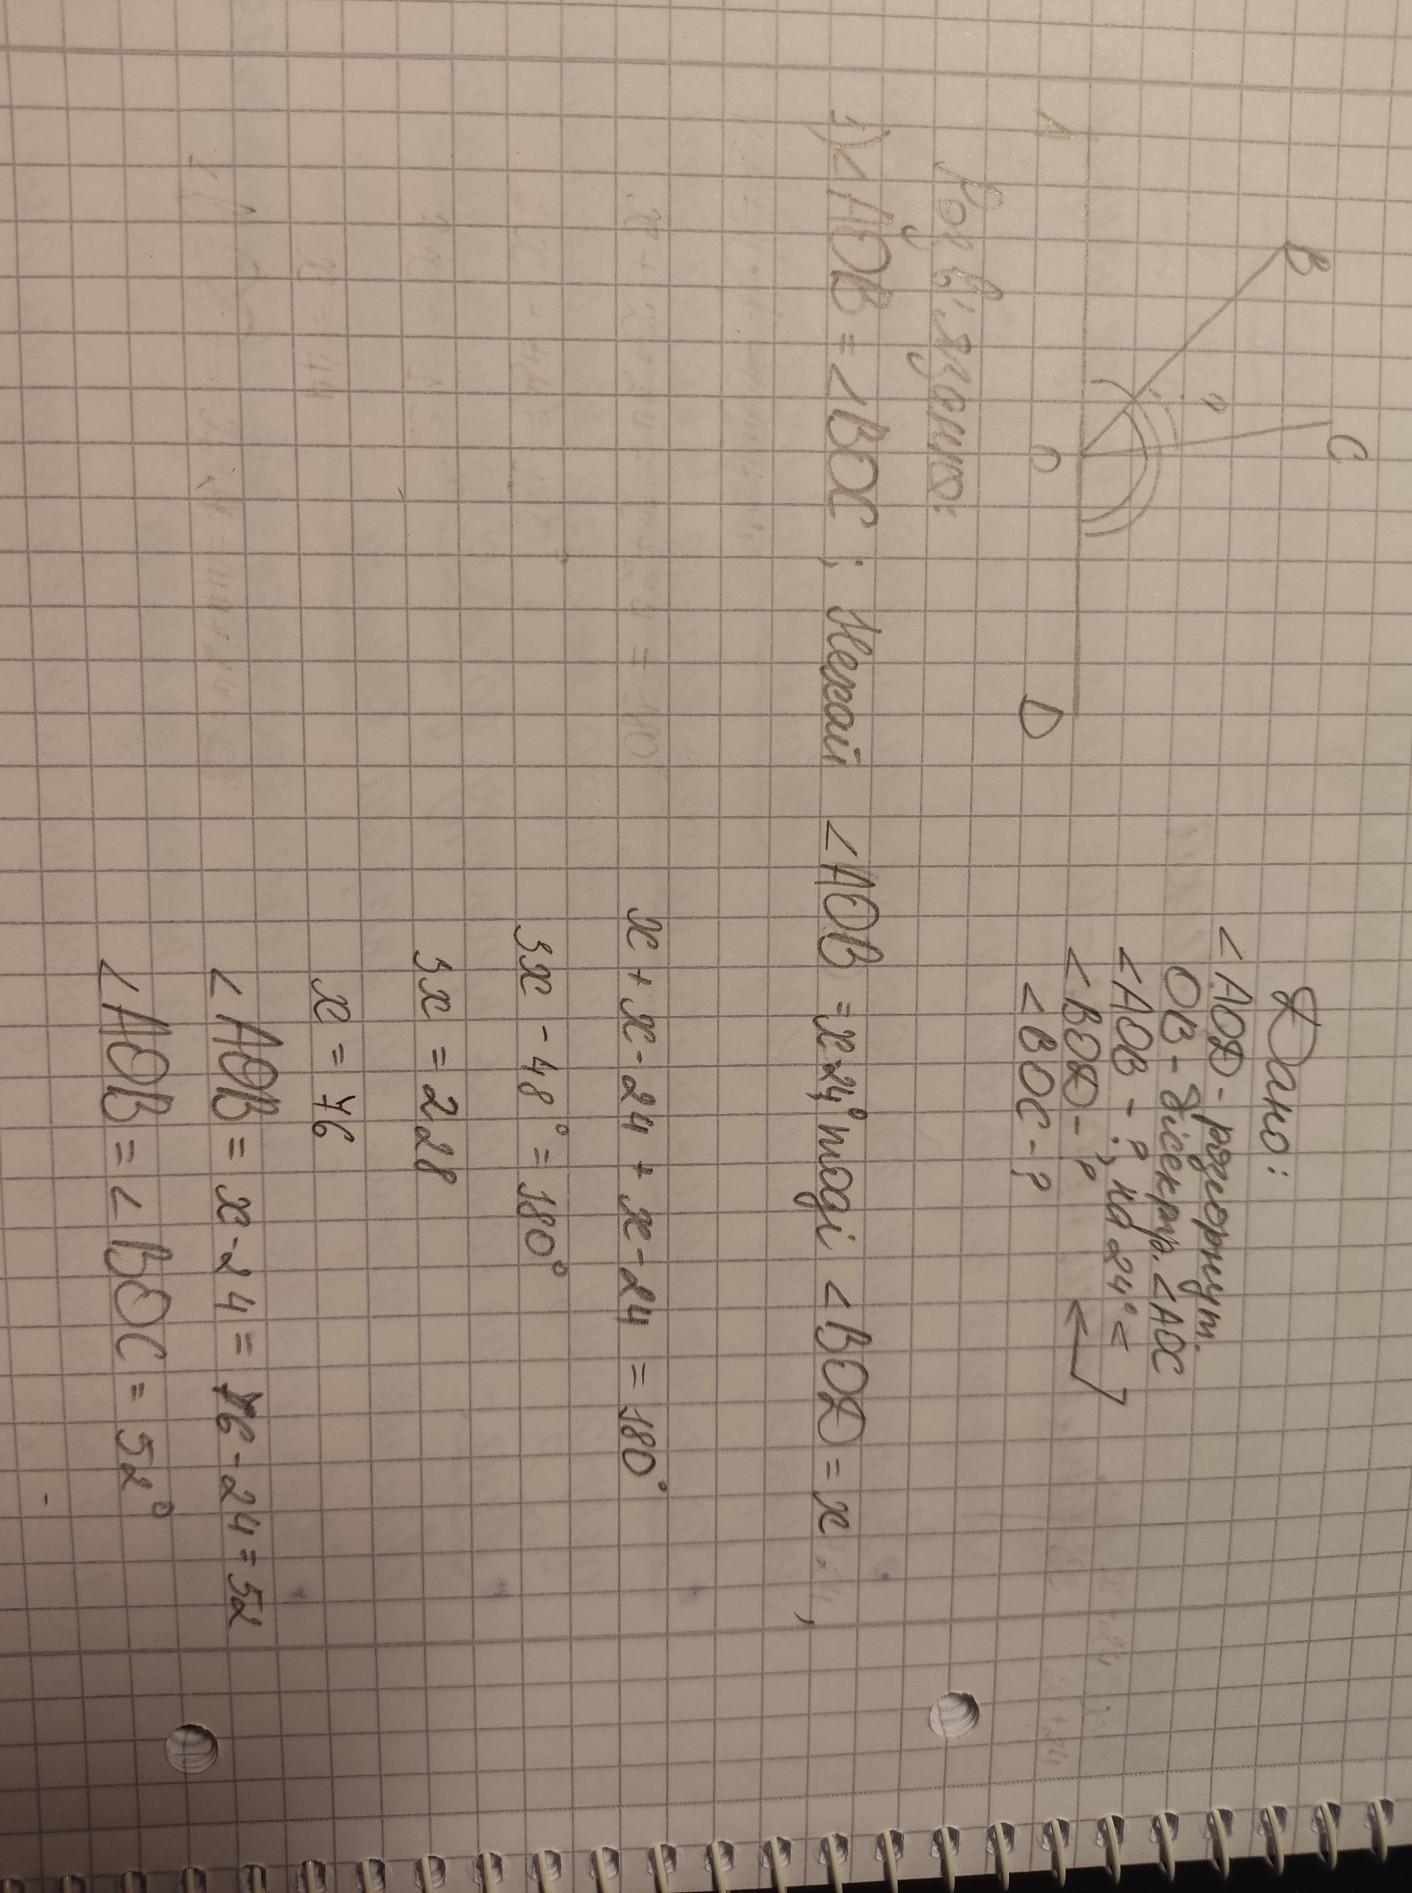 B
C
A
O
D
Дано:
∠AOD - розгорнут.
OB - бісектр. ∠AOC
∠AOB - ?, на 24° <
∠BOD - ?
∠BOC - ?
Розв'язання:
1) ∠AOB = ∠BOC; Нехай ∠AOB = x-24°, тоді ∠BOD = x,
x + x - 24 + x - 24 = 180°
3x - 48° = 180°
3x = 228
x = 76
∠AOB = x - 24 = 76 - 24 = 52
∠AOB = ∠BOC = 52°